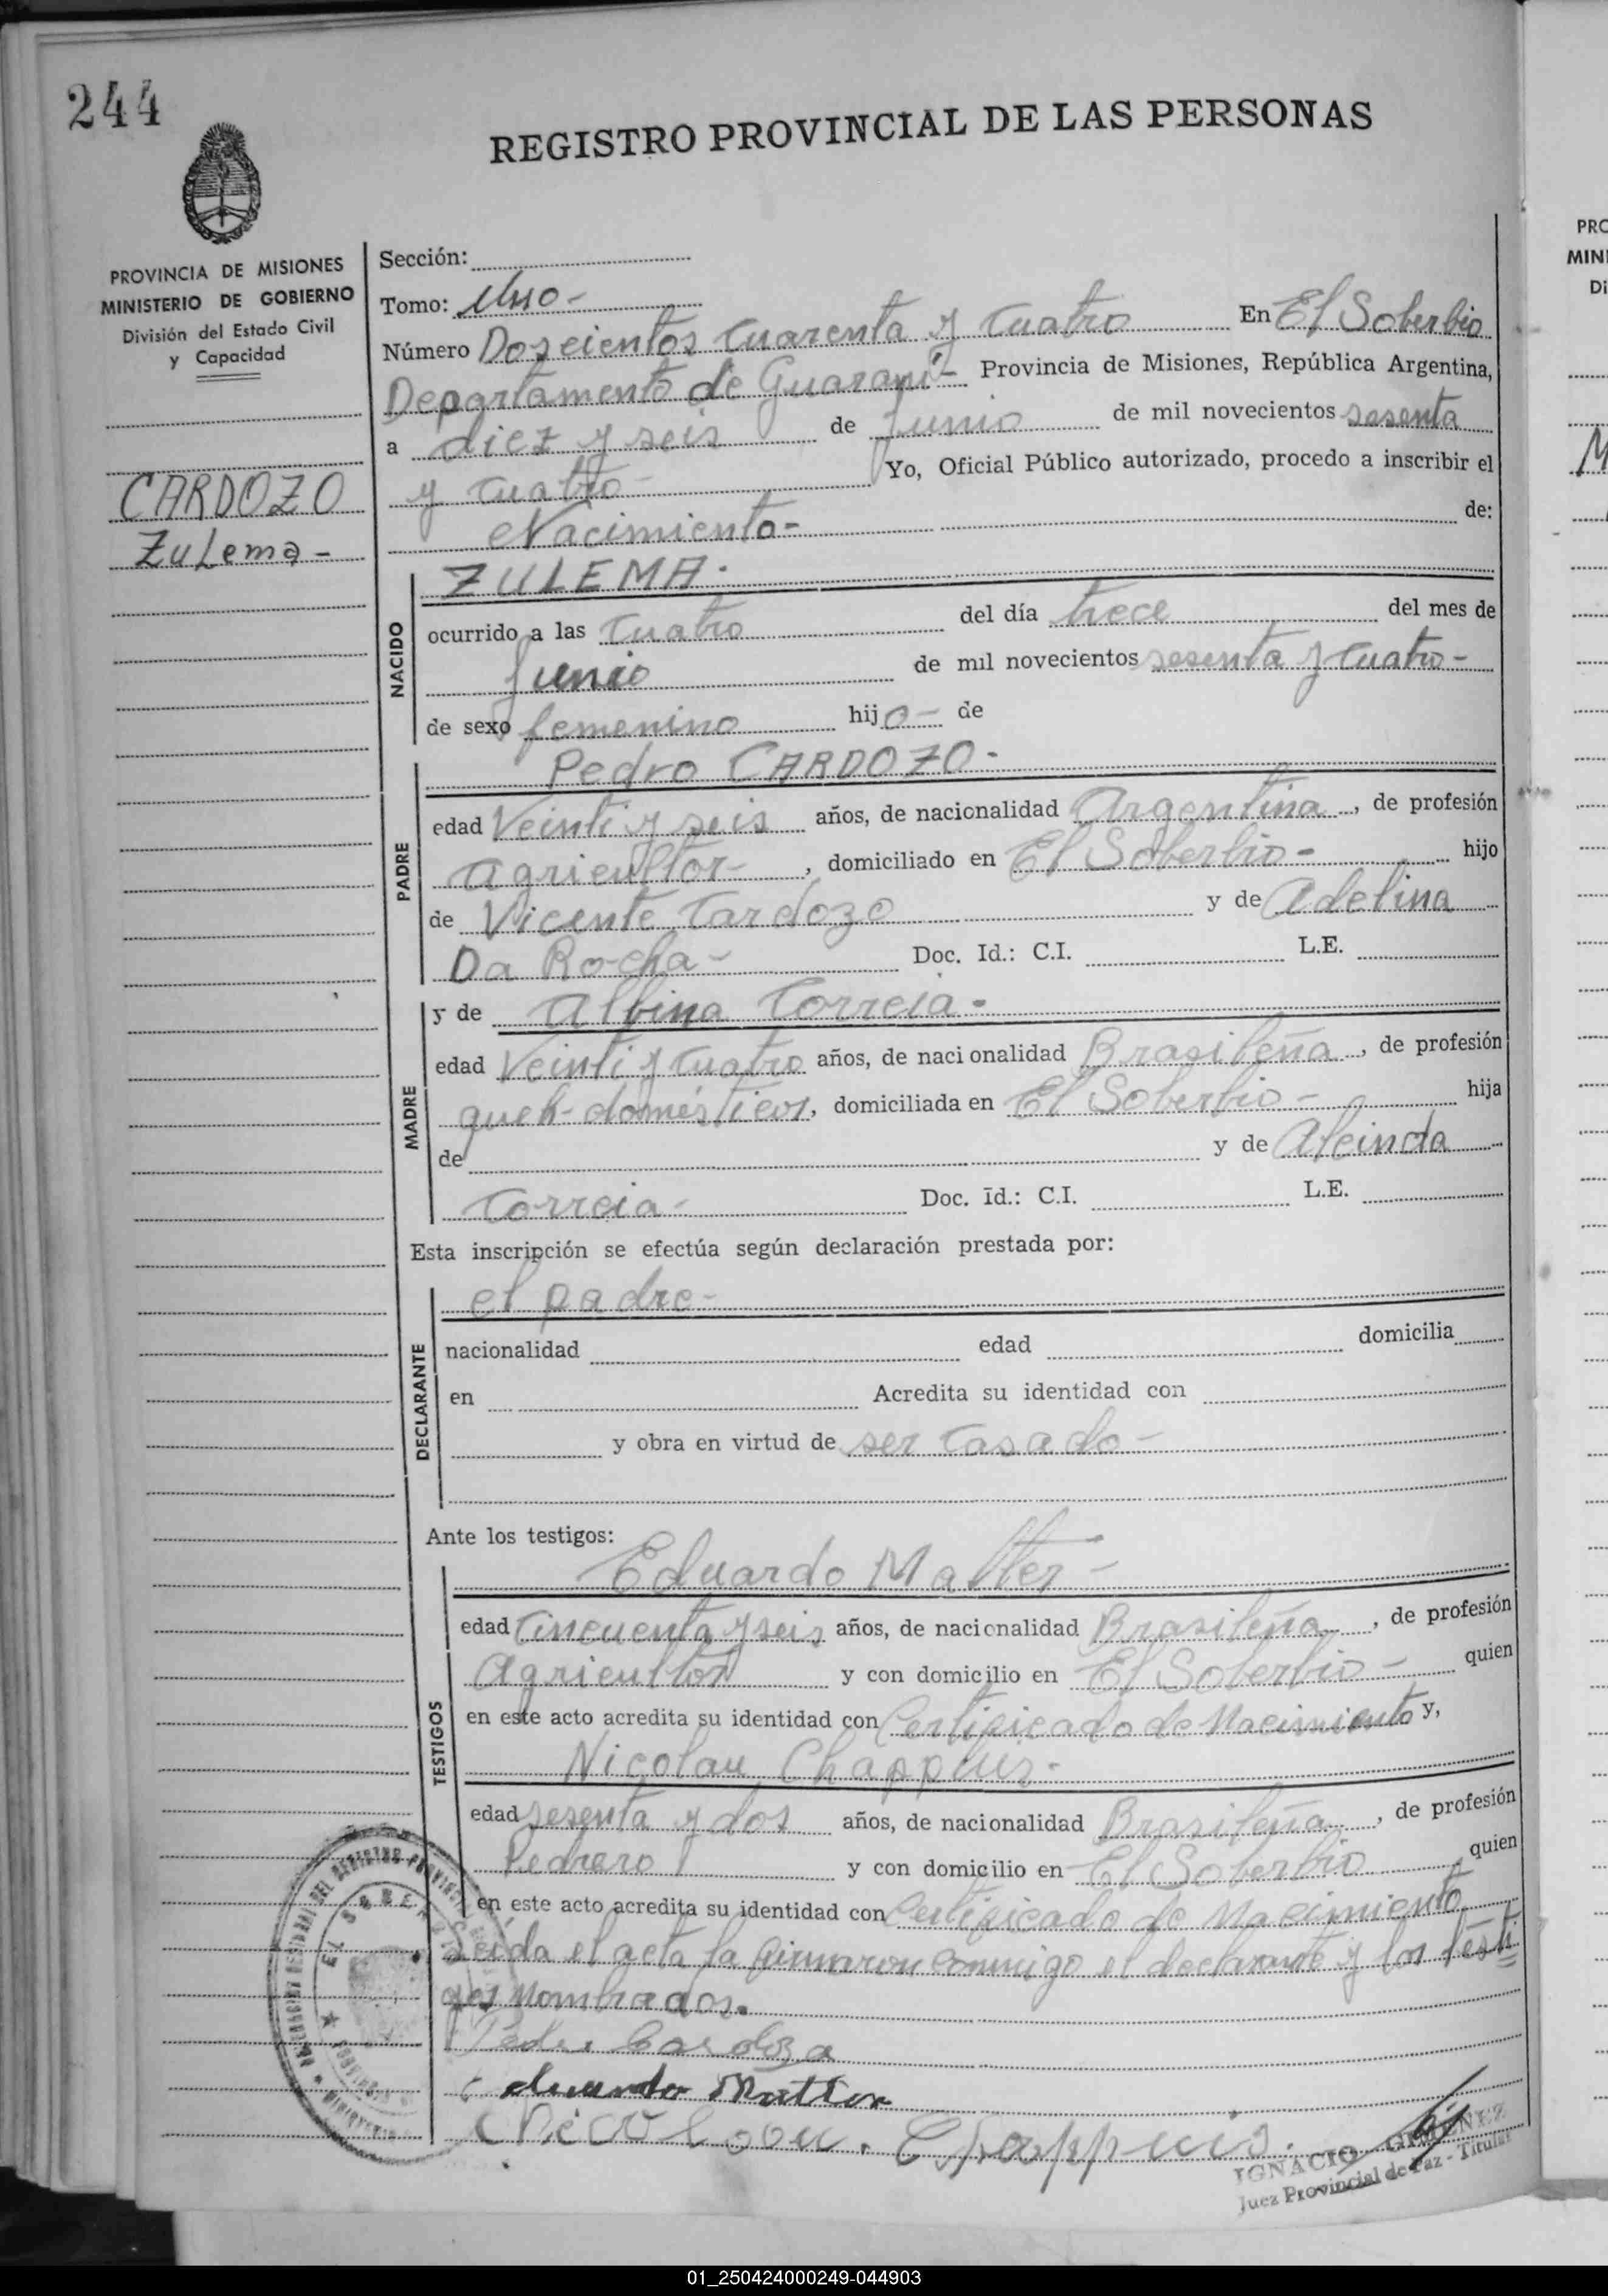 244
REGISTRO PROVINCIAL DE LAS PERSONAS
PROVINCIA DE MISIONES
MINISTERIO DE GOBIERNO
División del Estado Civil
y Capacidad
CARDOZO
Zulema-
Sección:
Tomo: Uno-
Número Doscientos Cuarenta y Cuatro En El Soberbio
Departamento de Guaraní- Provincia de Misiones, República Argentina,
a diez y seis de Junio de mil novecientos sesenta
y cuatro- Yo, Oficial Público autorizado, procedo a inscribir el
Nacimiento- de:
NACIDO
ZULEMA.
ocurrido a las Cuatro del día trece del mes de
Junio de mil novecientos sesenta y cuatro-
de sexo femenino hijo- de
PADRE
Pedro CARDOZO-
edad Veinti y seis años, de nacionalidad Argentina, de profesión
agricultor-, domiciliado en El Soberbio- hijo
de Vicente Cardozo y de Adelina
Da Rocha- Doc. Id.: C.I. L.E.
MADRE
y de Albina Correia-
edad Veinti y Cuatro años, de nacionalidad Brasileña, de profesión
queh-domésticos, domiciliada en El Soberbio- hija
de y de Alcinda
Correia- Doc. Id.: C.I. L.E.
Esta inscripción se efectúa según declaración prestada por:
DECLARANTE
el padre-
nacionalidad edad domicilia
en Acredita su identidad con
y obra en virtud de ser Casado-
Ante los testigos:
TESTIGOS
Eduardo Matter-
edad Cincuenta y seis años, de nacionalidad Brasileña, de profesión
Agricultor y con domicilio en El Soberbio- quien
en este acto acredita su identidad con Certificado de Nacimiento y,
Nicolau Chappuis-
edad sesenta y dos años, de nacionalidad Brasileña, de profesión
Pedrero y con domicilio en El Soberbio quien
en este acto acredita su identidad con Certificado de Nacimiento
Leída el acta la firmaron conmigo el declarante y los testi
gos nombrados.
Pedro Cardoza
Eduardo Matter
Nicoloau. Chappuis.
EL SOBERBIO
IGNACIO GIMENEZ
Juez Provincial de Paz - Titular
PRO
MINI
Di
M
01_250424000249-044903